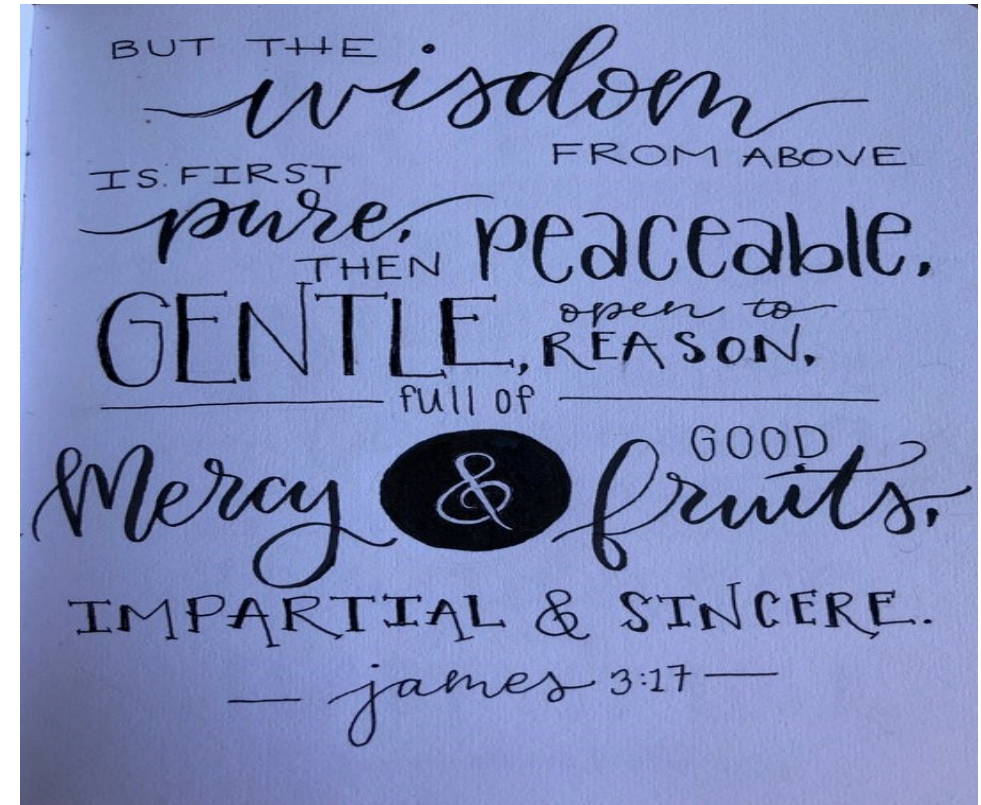 BUT THE
wisdom
FROM ABOVE
IS FIRST
pure,
THEN peaceable,
GENTLE, open to
REASON,
full of
Mercy & GOOD
fruits,
IMPARTIAL & SINCERE.
— james 3:17 —